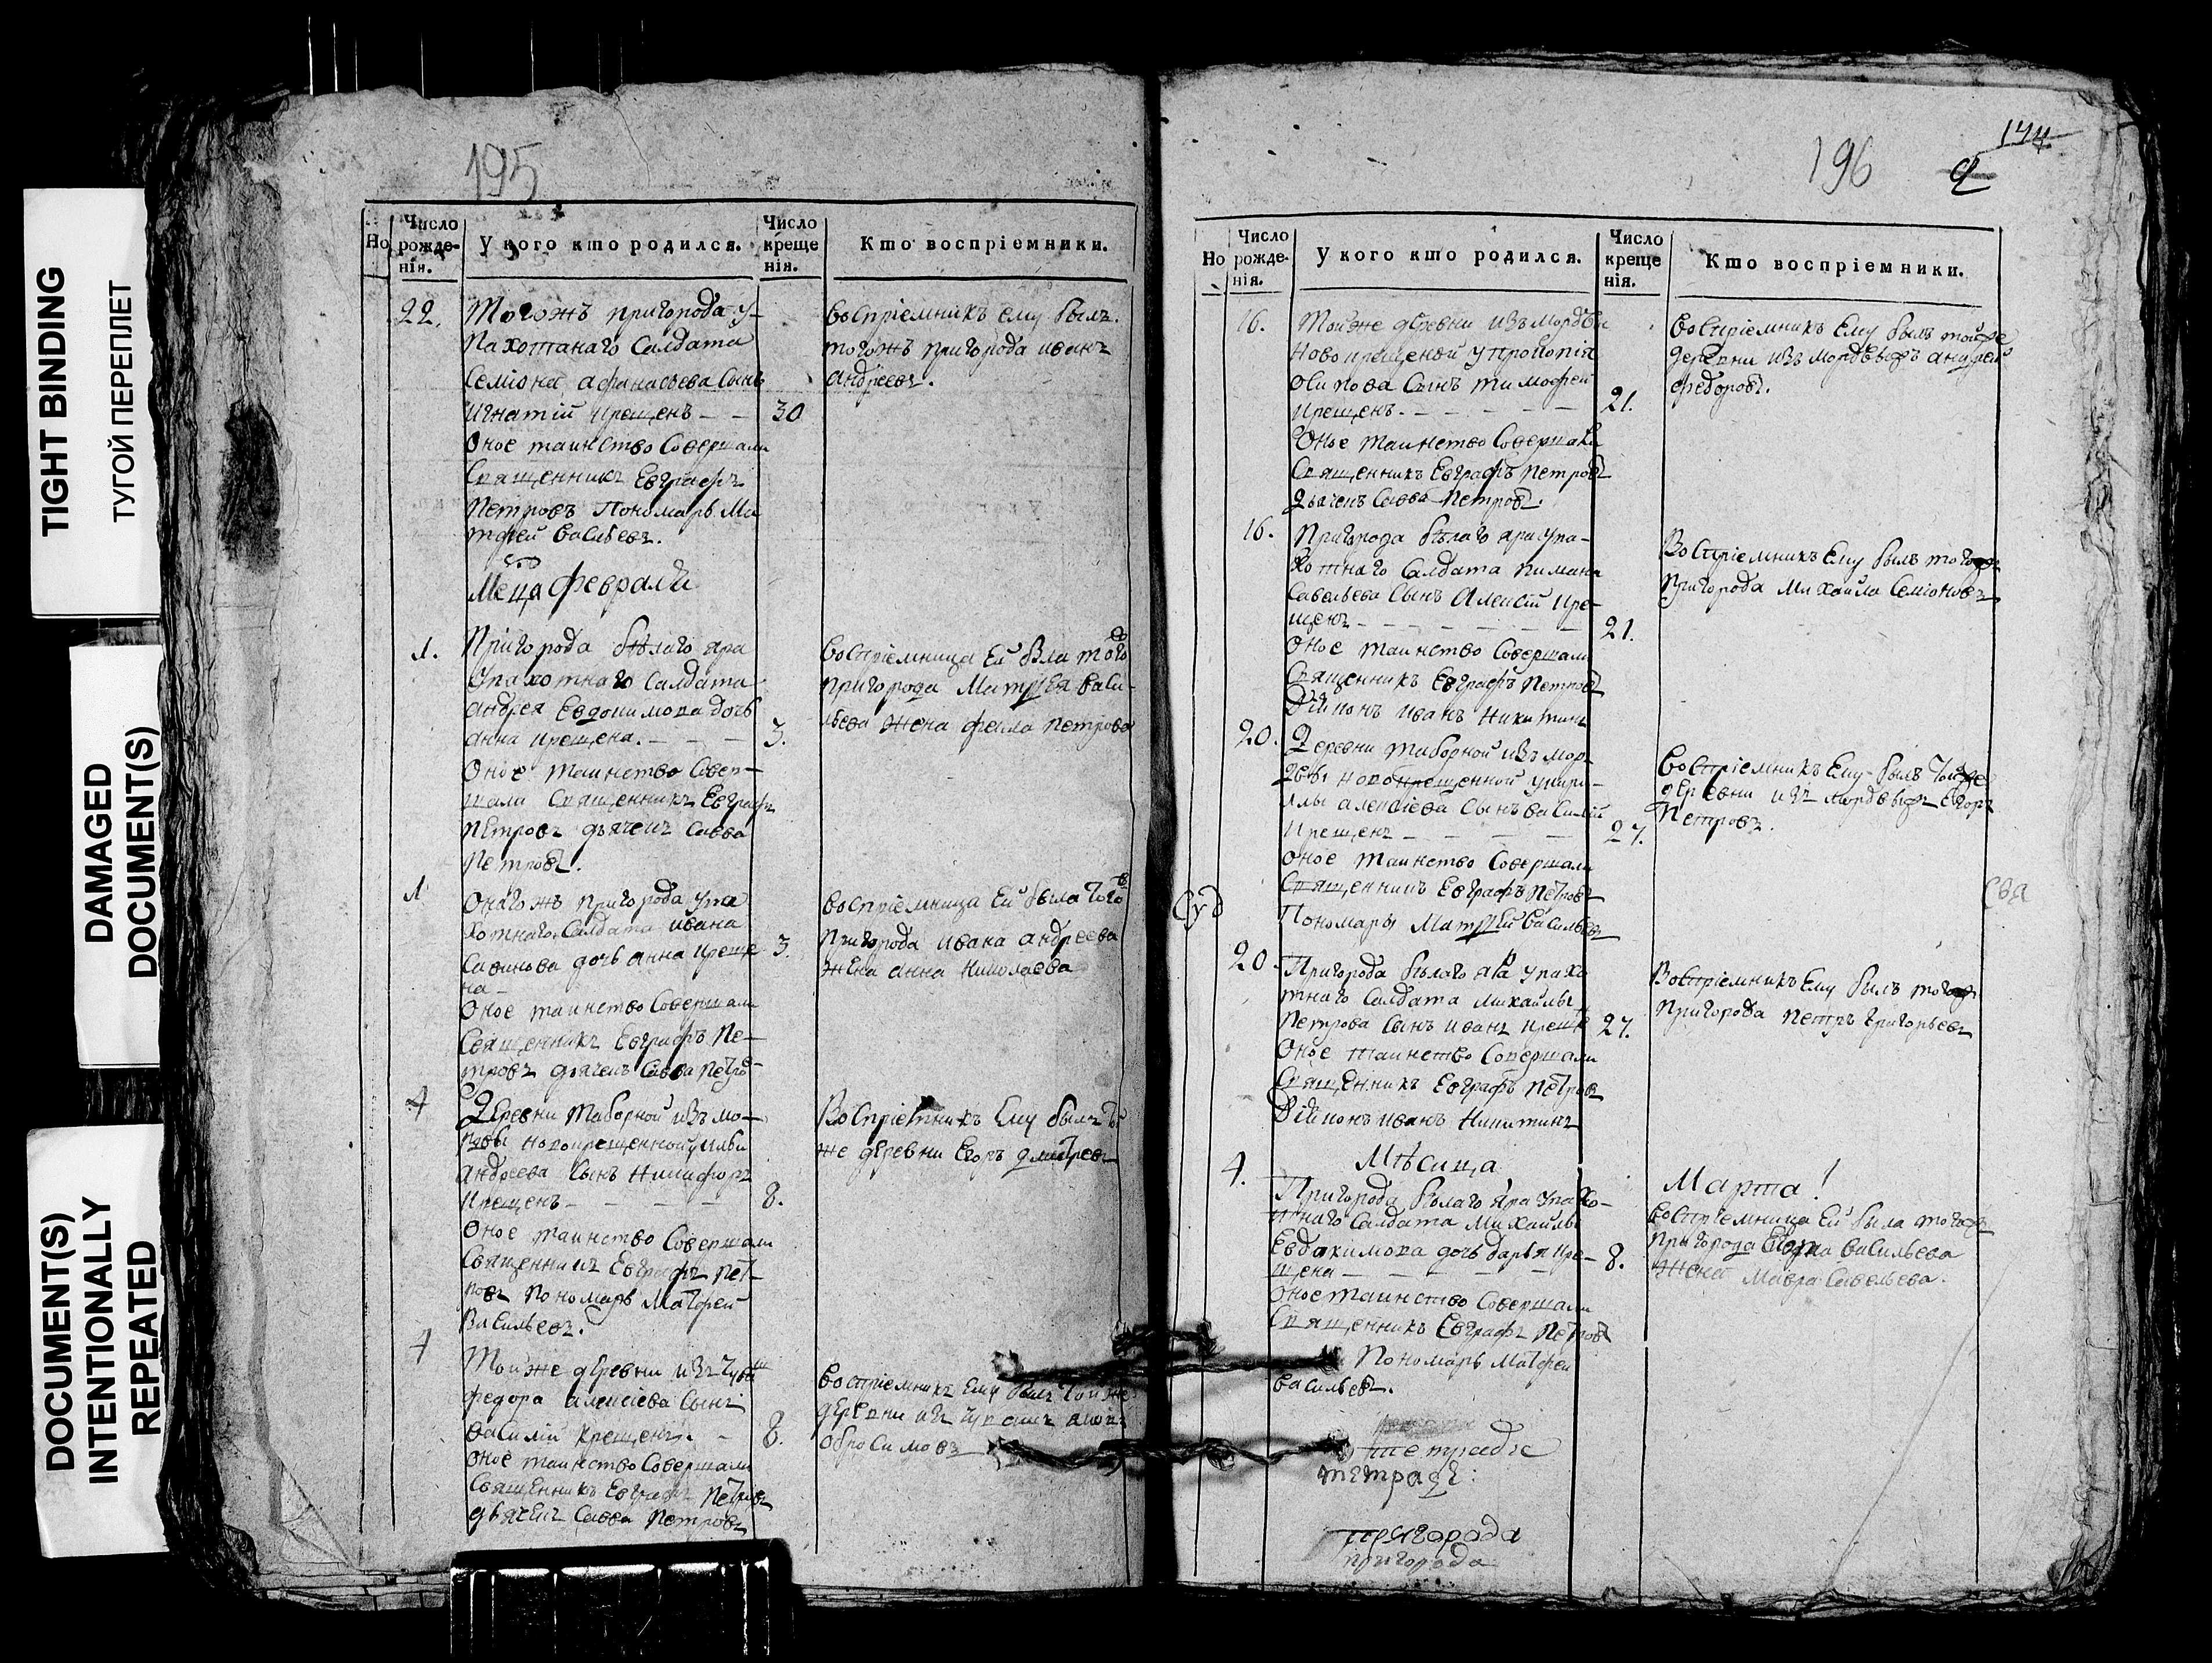 TIGHT BINDING
ТУГОЙ ПЕРЕПЛЕТ
DAMAGED
DOCUMENT(S)
DOCUMENT(S)
INTENTIONALLY
REPEATED
195
Но
Число рожде-нія.
У кого кто родился.
Число креще нія.
Кто воспріемники.
22.
Тогожъ пригорода у-
пахотанаго Салдата
Семіона афанасьева Сынъ
Игнатій крещенъ – – 30
Оное таинство Совершали
Священникъ Евграфъ
Петровъ Пономарь Ма
тфей Васильевъ.
воспріемникъ ему былъ.
тогожъ пригорода иванъ
андреевъ.
Мца февраля
1.
Пригорода бѣлаго яра
Упахотнаго Салдата
андрея Евдокимова дочь
анна крещена. – – – 3.
Оное таинство Совер-
шали Священникъ Евграфъ
Петровъ дьячекъ Савва
Петровъ.
Воспріемница Ей была того
пригорода Матфея Васи-
льева жена фекла Петрова
1
Онагожъ пригорода упа
хотнаго Салдата ивана
Савинова дочь анна креще 3.
на –
Оное таинство Совершали
Священникъ Евграфъ Пе-
тровъ дьячекъ Савва Петро
воспріемница Ей была того
Пригорода ивана андреева
жена анна Николаева
4
Деревни Таборной изъ мо-
рдвы новокрещенной
андреева Сынъ Никифоръ
Крещенъ – – – – 8.
Оное таинство Совершали
Священникъ Евграфъ Пет-
ровъ Пономарь Матфей
Васильевъ.
Воспріемникъ Ему былъ той
же деревни Егоръ дмитревъ
4
Той же деревни изъ чуваш
федора алексіева Сынъ
василій крещенъ. – 8.
Оное таинство Совершали
Священникъ Евграфъ Петровъ
дьячекъ Савва Петровъ
Воспріемникъ Ему былъ той же
деревни изъ чувашъ
обросимовъ
196
Но
Число рожде-нія.
У кого кто родился.
Число креще нія.
Кто воспріемники.
16.
Той же деревни изъ мордвы
новокрещеной у прокопія
осипова Сынъ тимофей
крещенъ. – – – – – 21.
Оное таинство Совершали
Священникъ Евграфъ Петровъ
дьячекъ Савва Петровъ.
Воспріемникъ Ему былъ той же
деревни изъ мордвы андрей
федоровъ.
16.
Пригорода бѣлаго яра упа-
хотнаго Салдата пимана
Савельева Сынъ алексій кре-
щенъ – – – – – – 21.
Оное таинство Совершали
Священникъ Евграфъ Петровъ
Діяконъ иванъ Никитинъ
Воспріемникъ Ему былъ тогожъ
Пригорода Михайла Семіоновъ
20.
Деревни таборной изъ мор-
двы новокрещенной укири-
лы алексіева Сынъ василій
крещенъ – – – – 27.
оное таинство Совершали
Священникъ Евграфъ Петровъ
Пономарь Матфей Васильевъ
воспріемникъ Ему былъ той же
деревни изъ мордвы Егоръ
Петровъ.
20.
Пригорода бѣлаго яра упахо
тнаго Салдата михайлы
Петрова Сынъ иванъ креще 27.
Оное таинство Совершали
Священникъ Евграфъ Петровъ
Діяконъ иванъ Никитинъ
Воспріемникъ Ему былъ тогожъ
Пригорода Петръ григорьевъ
Мѣсяца
Марта!
4.
Пригорода бѣлаго яра упахо-
тнаго Салдата Михайлы
Евдокимова дочь дарья кре- 8.
щена – – – –
Оное таинство Совершали
Священникъ Евграфъ Петровъ
Пономарь Матфей
васильевъ.
воспріемница Ей была тогожъ
пригорода васильева
жена мавра Савельева.
тетрадь
тетраде:
пригорода
пригорода